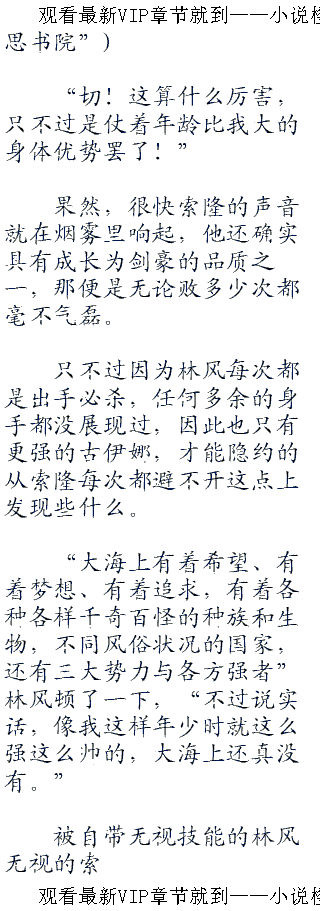 观看最新VIP章节就到——小说
思书院”）
“切！这算什么厉害，
只不过是仗着年龄比我大的
身体优势罢了！”
果然，很快索隆的声音
就在烟雾里响起，他还确实
具有成长为剑豪的品质之
一，那便是无论败多少次都
毫不气磊。
只不过因为林风每次都
是出手必杀，任何多余的身
手都没展现过，因此也只有
更强的古伊娜，才能隐约的
从索隆每次都避不开这点上
发现些什么。
“大海上有着希望、有
着梦想、有着追求，有着各
种各样千奇百怪的种族和生
物，不同风俗状况的国家，
还有三大势力与各方强者”
林风顿了一下，“不过说实
话，像我这样年少时就这么
强这么帅的，大海上还真没
有。”
被自带无视技能的林风
无视的索
观看最新VIP章节就到——小说